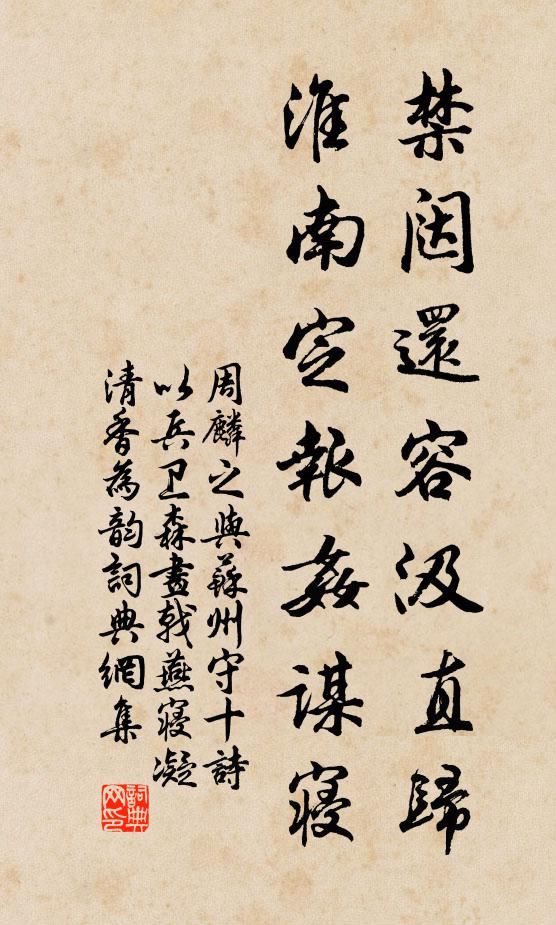 禁闼還容汲直歸
淮南定報姦謀寢
周麟之與蘇州守十詩
以兵卫森畫戟燕寢凝
清香為韵詞典網集
詞典网印